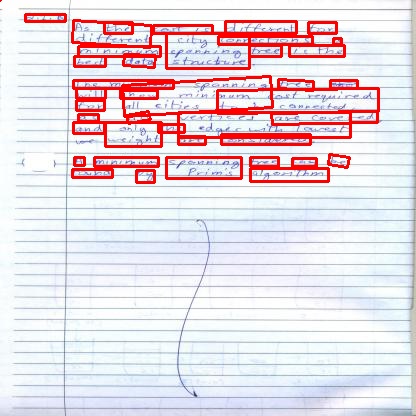 As the cost is different for
different city connections, a
minimum spanning tree is the
best data structure.
The minimum spanning tree
will minimum cost required
for all cities to be connected.
all vertices are covered
and only edges with lowest
weight are considered
A minimum spanning tree can be
using Prim's algorithm